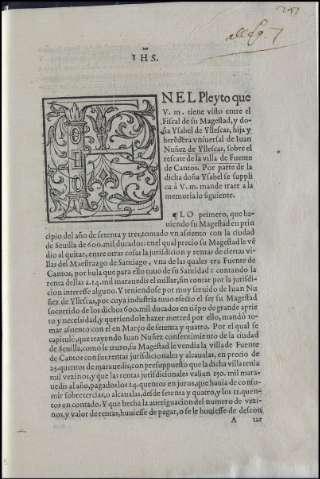 IHS.
EN EL Pleyto que
V. m. tiene visto entre el
Fiscal de su Magestad, y do-
ña Ysabel de Yllescas, hija y
heredera vniuersal de Iuan
Nuñez de Yllescas, sobre el
rescate de la villa de Fuente
de Cantos. Por parte de la
dicha doña Ysabel se suppli
ca à V. m. mande traer a la
memoria lo siguiente.
¶ LO primero, que ha-
uiendo su Magestad en prin
cipio del año de setenta y tres, tomado vn asiento con la ciudad
de Seuilla de 600. mil ducados: en el qual precio su Magestad le vẽ
dio al quitar, entre otras cosas la jurisdicion y rentas de ciertas vi-
llas del Maestrazgo de Santiago, vna de las quales era Fuente de
Cantos, por bula que para ello tuuo de su Santidad: contando la
renta dellas a 24. mil marauedis el millar, sin contar por la jurisdi-
cion interesse alguno. Y teniendose por muy seruido de Iuan Nu
ñez de Yllescas, por cuya industria tuuo efecto el ser su Magestad
socorrido de los dichos 600. mil ducados en tiẽpo de grande aprie
to y necesidad, y queriendole hazer merced por ello, mandò to-
mar asiento con el en Março de setenta y quatro. Por el qual se
capitulo, que trayendo Iuan Nuñez consentimiento de la ciudad
de Seuilla, como le truxo, su Magestad le vendia la villa de Fuente
de Cantos con sus rentas jurisdicionales y alcaualas, en precio de
25. quentos de marauedis, con presupuesto que la dicha villa tenia
mil vezinos, y que las rentas jurisdicionales valian 250. mil mara-
uedis al año, pagados los 14. quentos en juros, que hauia de consu-
mir sobre tercias, o alcaualas, desde setenta y quatro, y los 11. quen-
tos en contado. Y que hecha la aueriguacion del numero de vezi-
nos, y valor de rentas, huuiesse de pagar, o se le huuiesse de descon
A tar